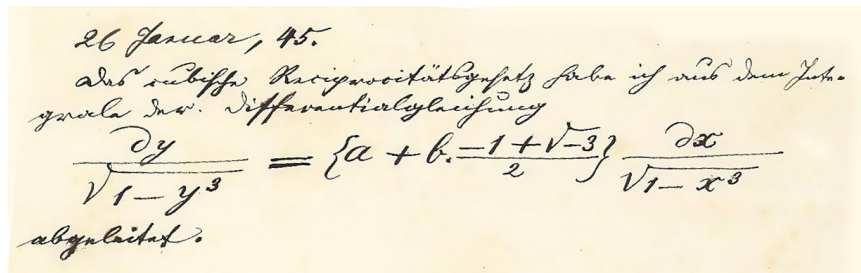 26 Januar, 45.
Das cubische Reciprocitätsgesetz habe ich aus dem Inte-
grale der. Differentialgleichung
∂y / √(1 − y³) = {a + b. (−1 + √−3) / 2} ∂x / √(1 − x³)
abgeleitet.